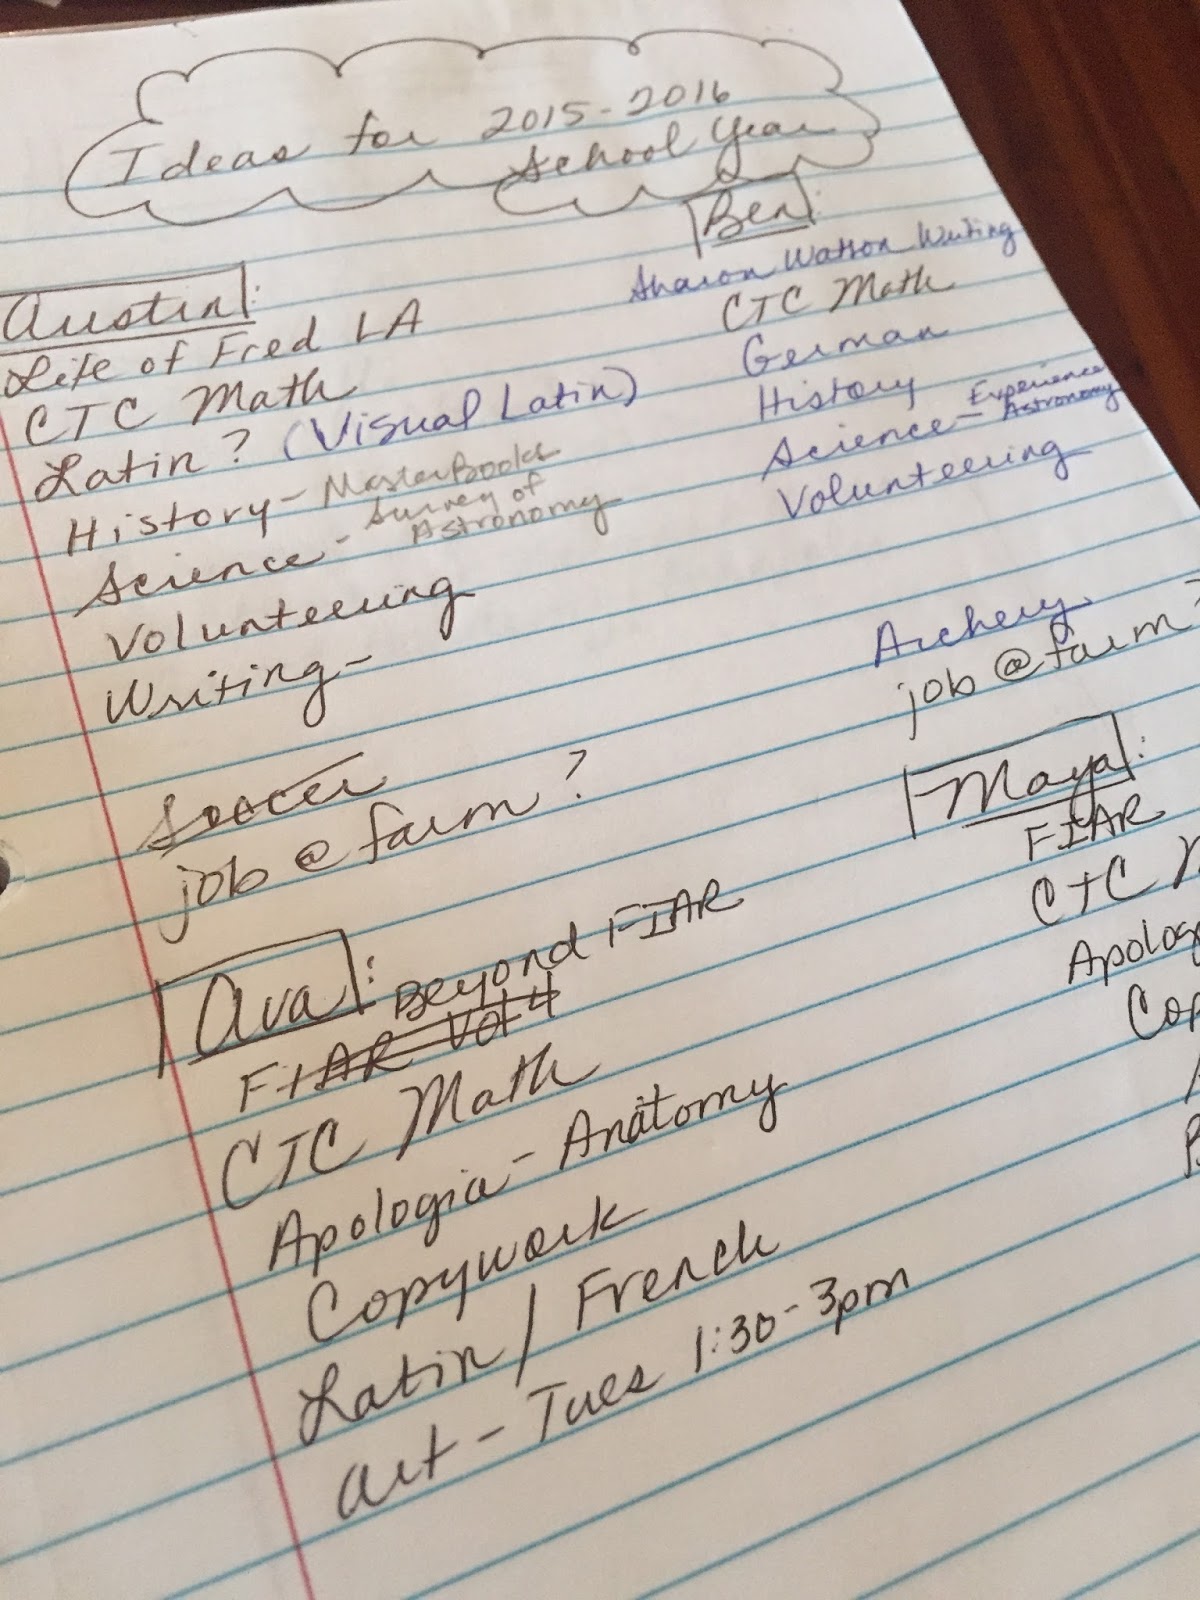 Ideas for 2015-2016
School Year
Austin:
Life of Fred LA
CTC Math
Latin? (Visual Latin)
History - MasterBooks
Science - Survey of
Astronomy
Volunteering
Writing -
Soccer
job @ farm?
Ben:
Sharon Watson Writing
CTC Math
German
History
Science - Experience
Astronomy
Volunteering
Archery
job @ farm?
Ava: Beyond FIAR
FIAR Vol 4
CTC Math
Apologia - Anatomy
Copywork
Latin / French
Art - Tues 1:30-3pm
Maya:
FIAR
CTC